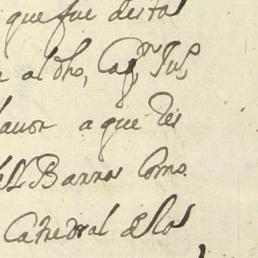 que fue destos
al dho, Cap.n Ju,o
favor a que des
Barras Como
Cathedral de los